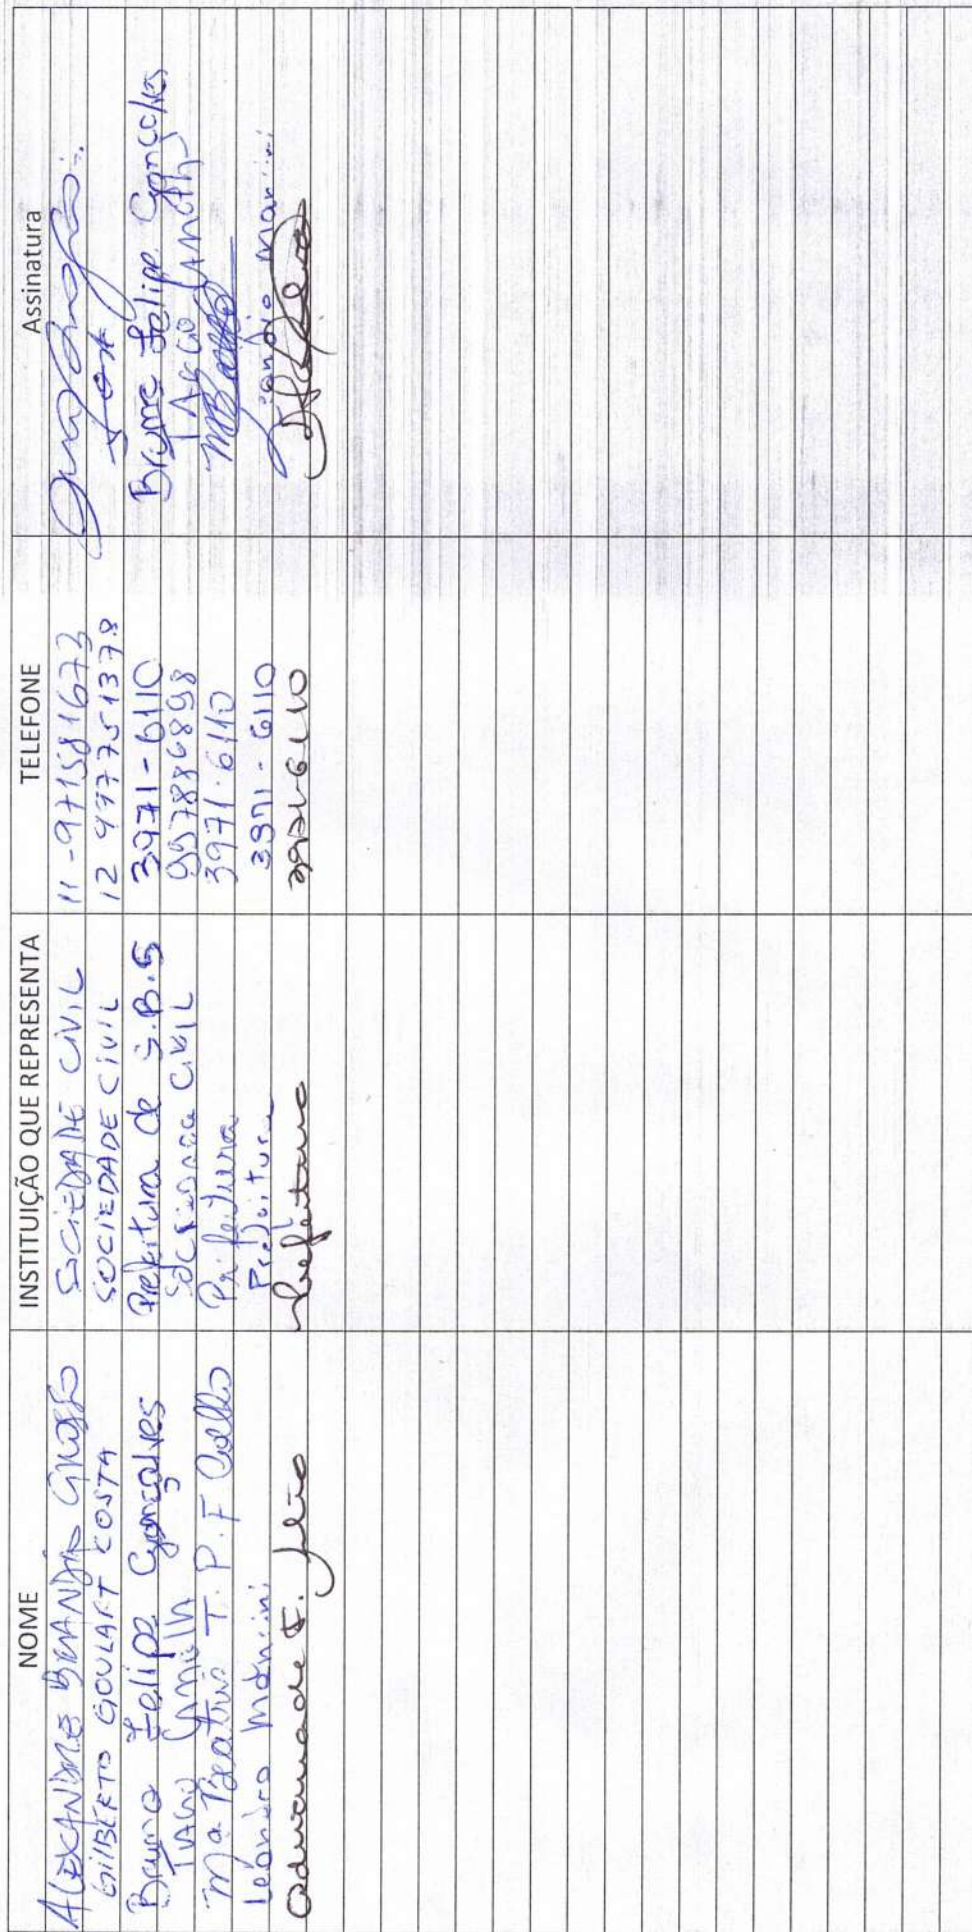 NOME INSTITUIÇÃO QUE REPRESENTA TELEFONE Assinatura
ALEXANDRE BRANDÃO SOCIEDADE CIVIL 11-971581673
GILBERTO GOULART COSTA SOCIEDADE CIVIL 12 997751378
Bruno Felipe Gonçalves Prefeitura de S.B.S 3971-6110 Bruno Felipe Gonçalves
SOCIEDADE CIVIL 997886898
Ma Beatriz T. P. F Coelho Prefeitura 3971.6110
Leandro Mancini Prefeitura 3971-6110 Leandro Mancini
Prefeitura 3971-6110